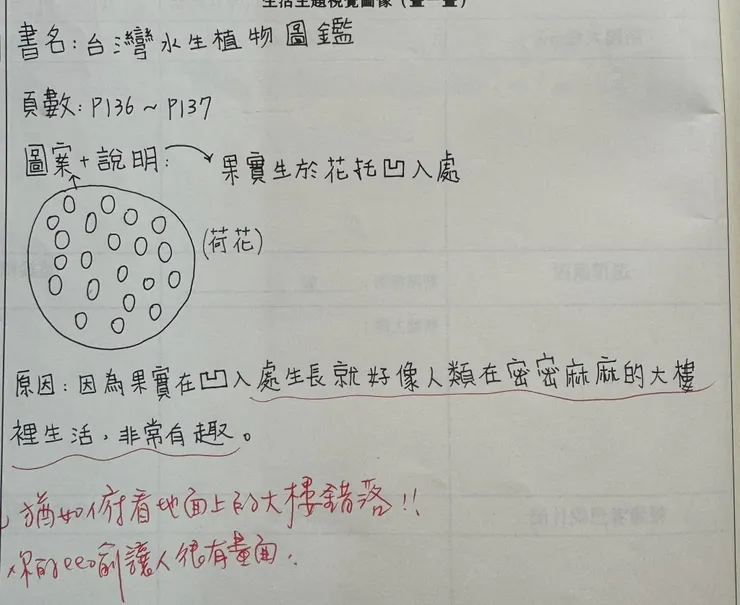 生活主題視覺圖像（畫一畫）
書名：台灣水生植物圖鑑
頁數：P136～P137
圖案+說明：→果實生於花托凹入處
(荷花)
原因：因為果實在凹入處生長就好像人類在密密麻麻的大樓
裡生活，非常有趣。
猶如俯看地面上的大樓錯落!!
你的 讓人很有畫面.